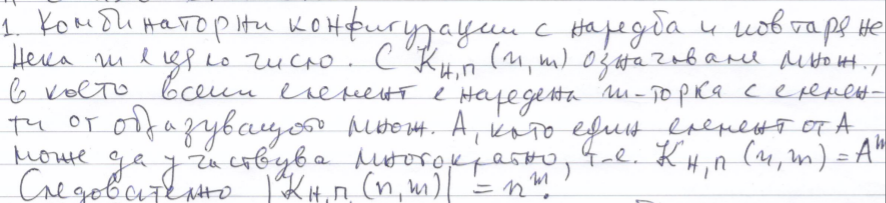 1. Комбинаторни конфигурации с наредба и повтаряне
Нека m е цяло число. С K_{Н,П} (n, m) означаваме множ.,
в което всеки елемент е наредена m-торка с елемен-
ти от образуващото множ. A, като един елемент от A
може да участвува многократно, т.е. K_{Н,П} (n, m) = A^m
Следователно |K_{Н,П} (n, m)| = n^m.